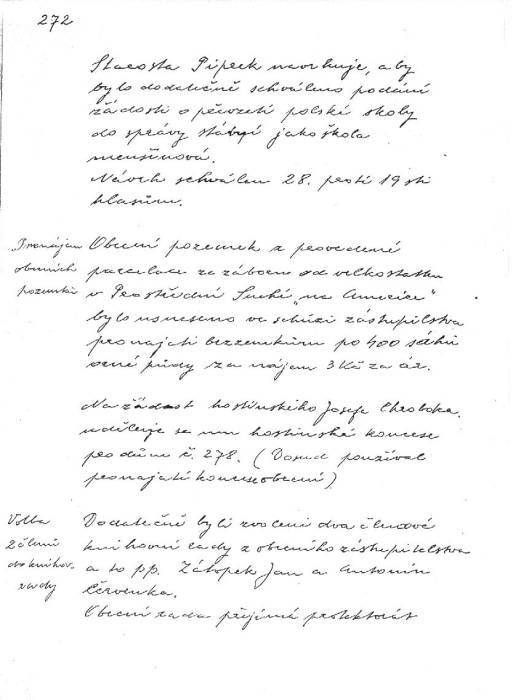 272
Starosta Piprek navrhuje, aby
bylo dodatečně schváleno podání
žádosti o převzetí polské školy
do správy státní jako škola
menšinová.
Návrh schválen 28. proti 19 sti
hlasům.
"Pronájem
obecních
pozemků
Obecní pozemek z provedené
parcelace za záborn od velkostatku
v Prostřední Suché "na Americe"
bylo usneseno ve schůzi zástupitelstva
pronajati bezzemkům po 400 sáhů
orné půdy za nájem 3 Kč za ár.
Na žádost hostinského Josefa Chroboka
uděluje se mu hostinské koncese
pro dům č. 278. (Dosud používal
pronajatí koncese obecní)
Volba
2 členů
do knihov.
rady
Dodatečně byli zvoleni dva členové
knihovní rady z obecního zástupitelstva
a to pp. Zátopek Jan a Antonín
Červenka.
Obecní rada přijímá protektorát